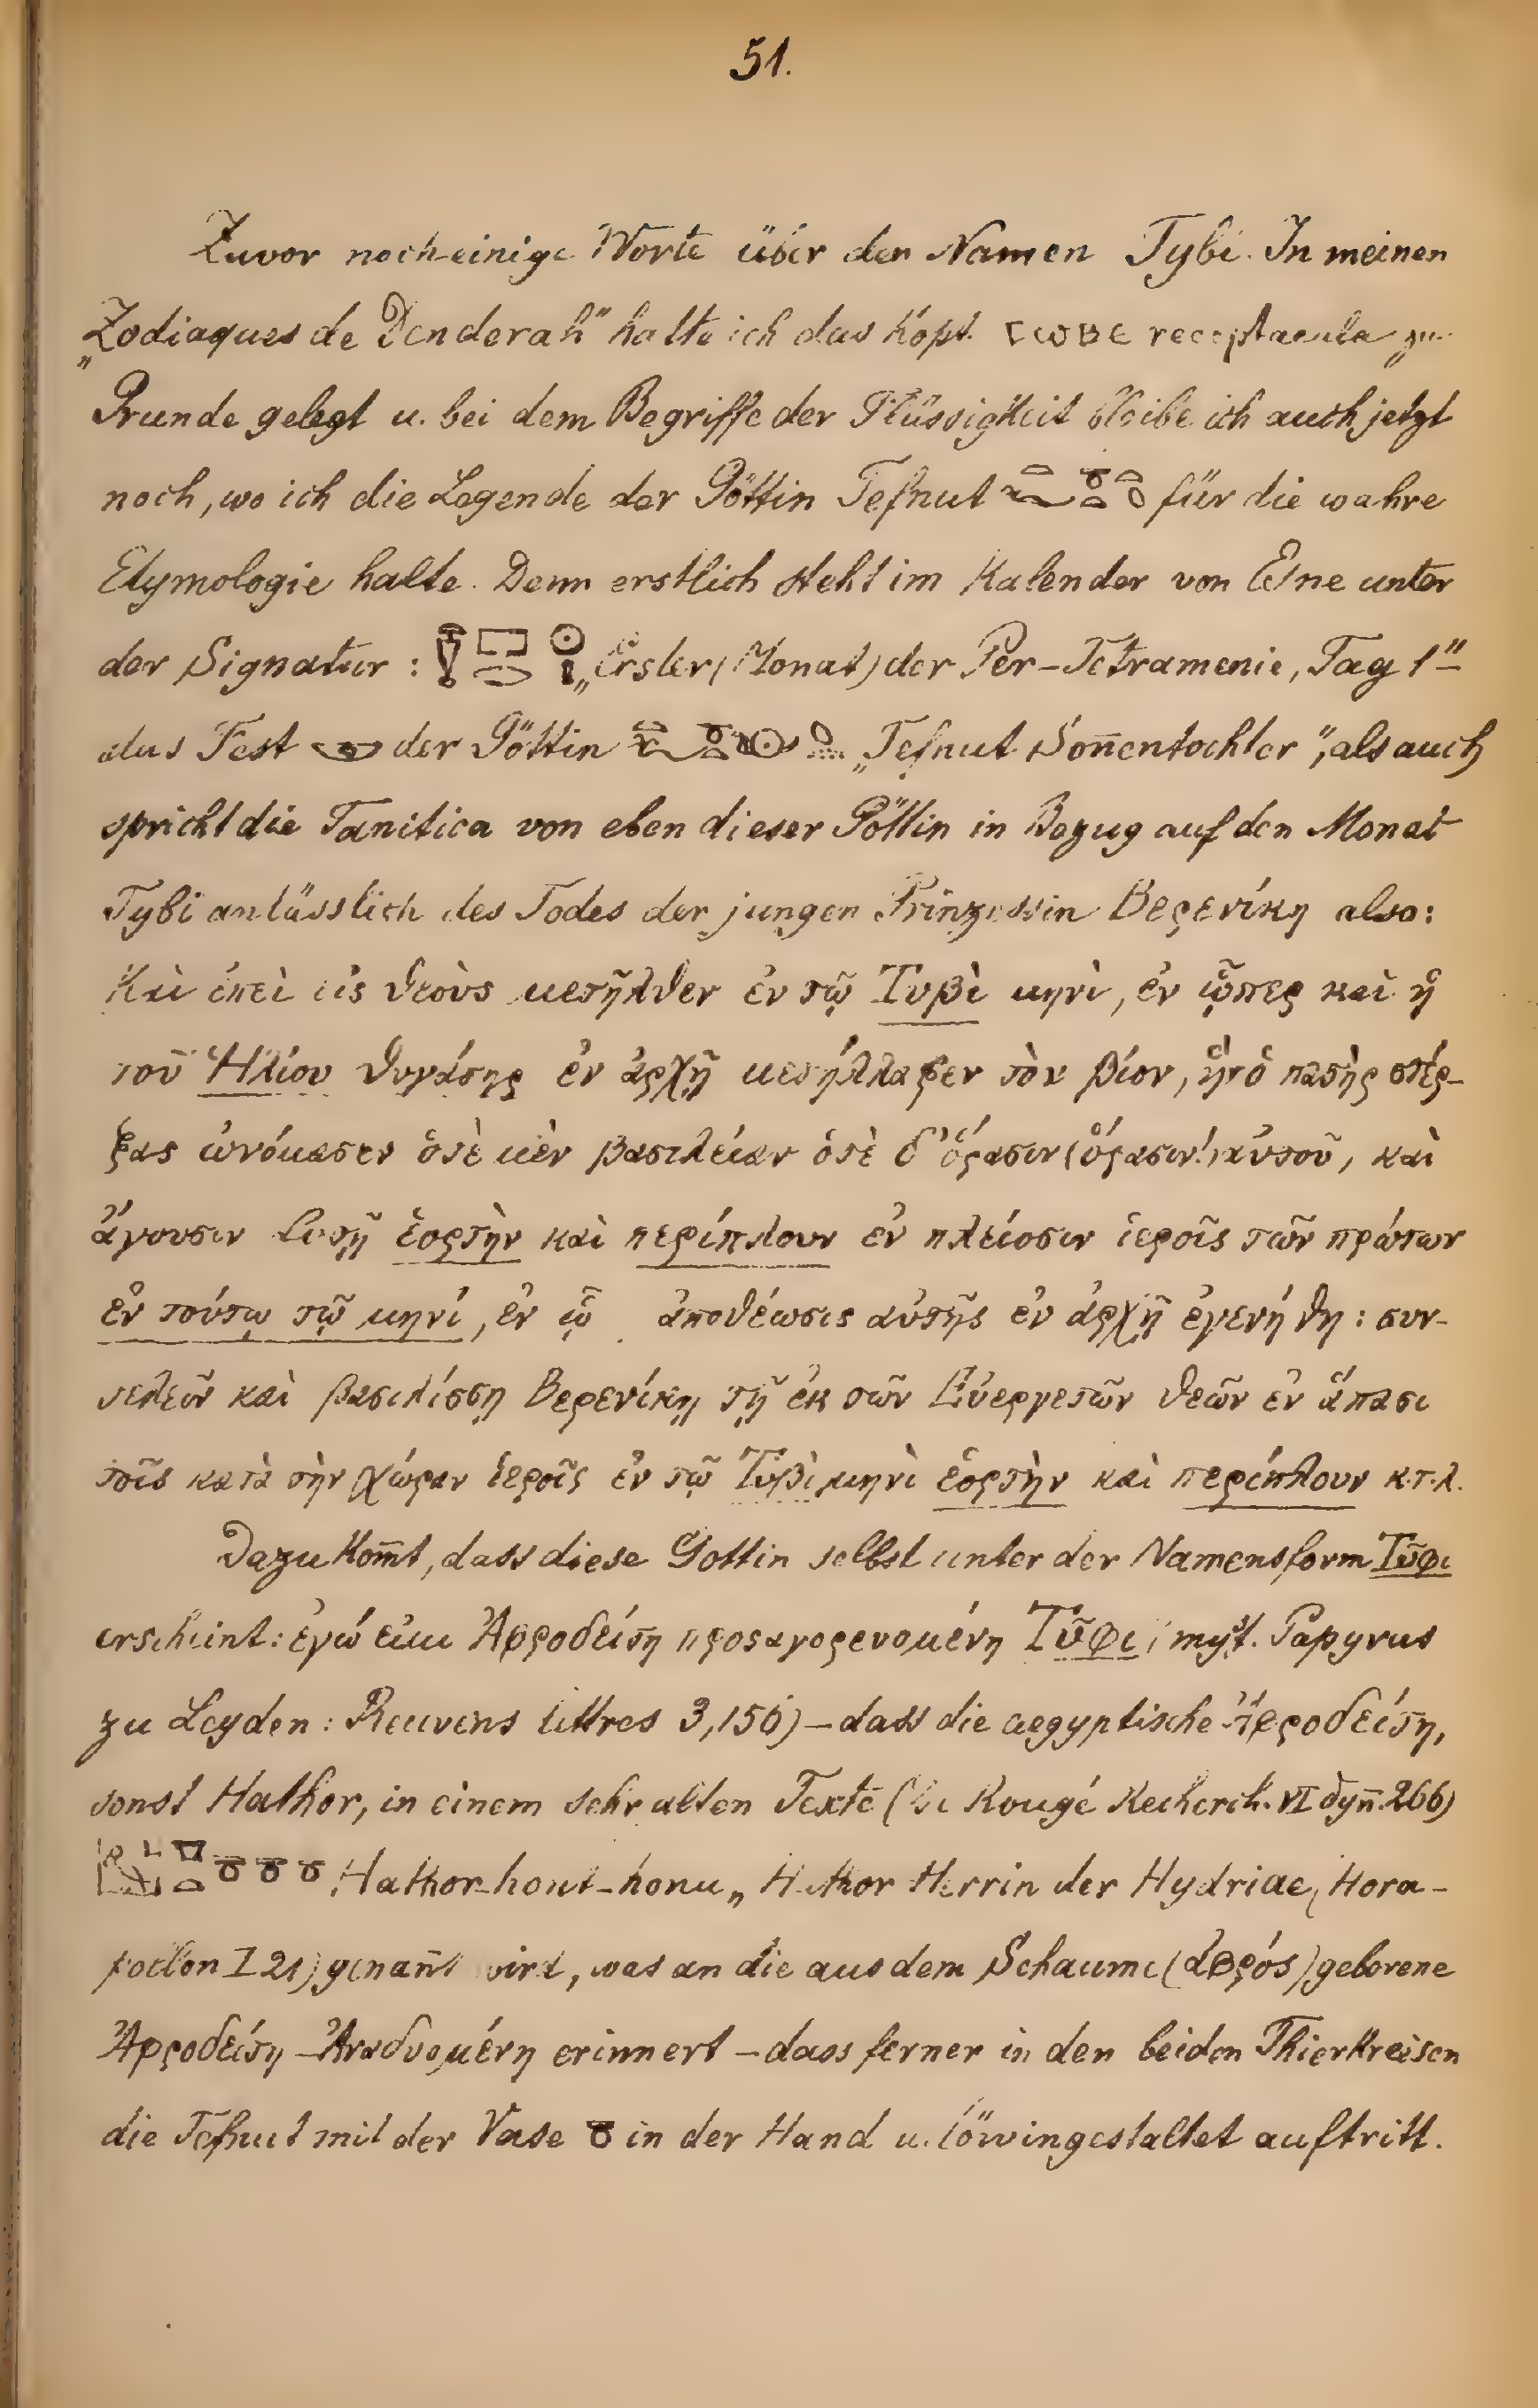 51.
Zuvor noch einige Worte über den Namen Tybi. In meinen
„Zodiaques de Denderah" hatte ich das kopt. ⲧⲱⲃⲉ receptacula zu
Grunde gelegt u. bei dem Begriffe der Flüssigkeit bleibe ich auch jetzt
noch, wo ich die Legende der Göttin Tefnut für die wahre
Etymologie halte. Denn erstlich steht im Kalender von Esne unter
der Signatur: „Erster (Monat) der Per-Tetramenie, Tag 1"
das Fest der Göttin „Tefnut Son̄entochter", als auch
spricht die Tanitica von eben dieser Göttin in Bezug auf den Monat
Tybi anlässlich des Todes der jungen Prinzessin Βερενίκη also:
Καὶ ἐπεὶ εἰς θεοὺς μετῆλθεν ἐν τῷ Τυβὶ μηνὶ, ἐν ᾧπερ καὶ ἡ
τοῦ Ἡλίου θυγάτηρ ἐν ἀρχῇ μετήλλαξεν τὸν βίον, ἣν ὁ πατὴρ στέρ-
ξας ὠνόμασεν ὁτὲ μὲν βασιλείαν ὁτὲ δ' ὅρασιν (ὅρασιν!) αὐτοῦ, καὶ
ἄγουσιν αὐτῇ ἑορτὴν καὶ περίπλουν ἐν πλείοσιν ἱεροῖς τῶν πρώτων
ἐν τούτῳ τῷ μηνί, ἐν ᾧ ἀποθέωσις αὐτῆς ἐν ἀρχῇ ἐγενήθη: συν-
τελεῖν καὶ βασιλίσσῃ Βερενίκῃ τῇ ἐκ τῶν Εὐεργετῶν θεῶν ἐν ἅπασι
τοῖς κατὰ τὴν χώραν ἱεροῖς ἐν τῷ Τυβὶ μηνὶ ἑορτὴν καὶ περίπλουν κ.τ.λ.
Dazu kom̄t, dass diese Göttin selbst unter der Namensform Τῦφι
erscheint: ἐγώ εἰμι Ἀφροδείτη προσαγορευομένη Τῦφι; myst. Papyrus
zu Leyden: Reuvens lettres 3,156) – dass die aegyptische Ἀφροδείτη,
sonst Hathor, in einem sehr alten Texte (de Rougé Recherch. VI dyn̄. 266)
Hathor-hont-honu „Hathor Herrin der Hydriae, Hora-
pollon I 21) genan̄t wird, was an die aus dem Schaume (ἀφρός) geborene
Ἀφροδείτη-Ἀναδυομένη erinnert – dass ferner in den beiden Thierkreisen
die Tefnut mit der Vase in der Hand u. löwingestaltet auftritt.